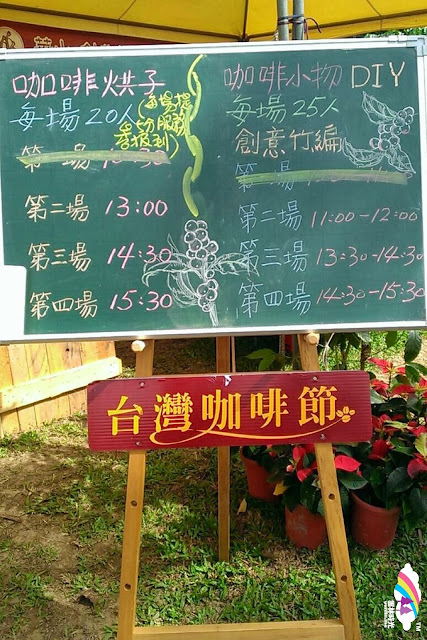 咖啡烘子
每場20人
第一場
第二場 13:00
第三場 14:30
第四場 15:30
咖啡小物 DIY
每場25人
創意竹編
第一場
第二場 11:00-12:00
第三場 13:30-14:30
第四場 14:30-15:30
台灣咖啡節